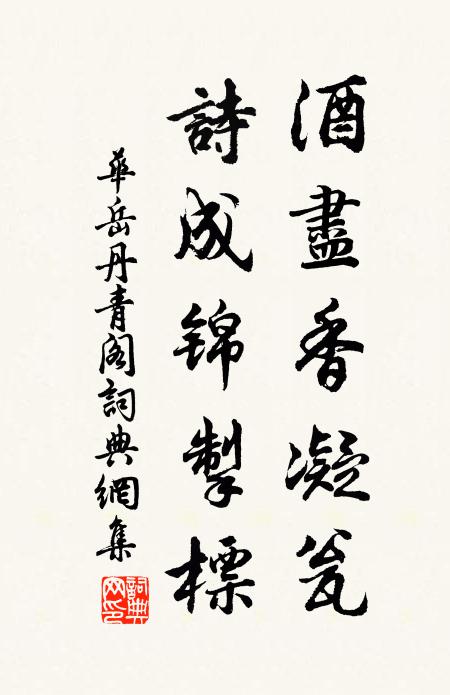 酒盡香凝瓮
詩成锦掣標
華岳丹青阁詞典網集
詞典網印